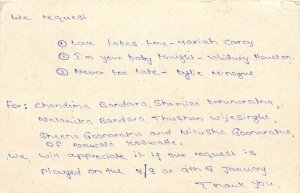 We request
① Love takes time - Mariah Carey
② I'm your baby tonight - Whitney Houston.
③ Never too late - Kylie Minogue
For: Chandima Bandara, Shamina Karunaratna,
Bandara, Thushan Wijesinghe,
Sheena Goonaratna and Nilusha Goonaratna,
OF Nawala Koswatte.
We will appreciate it if our request is
played on the 4/8 or 9th of January
Thank you